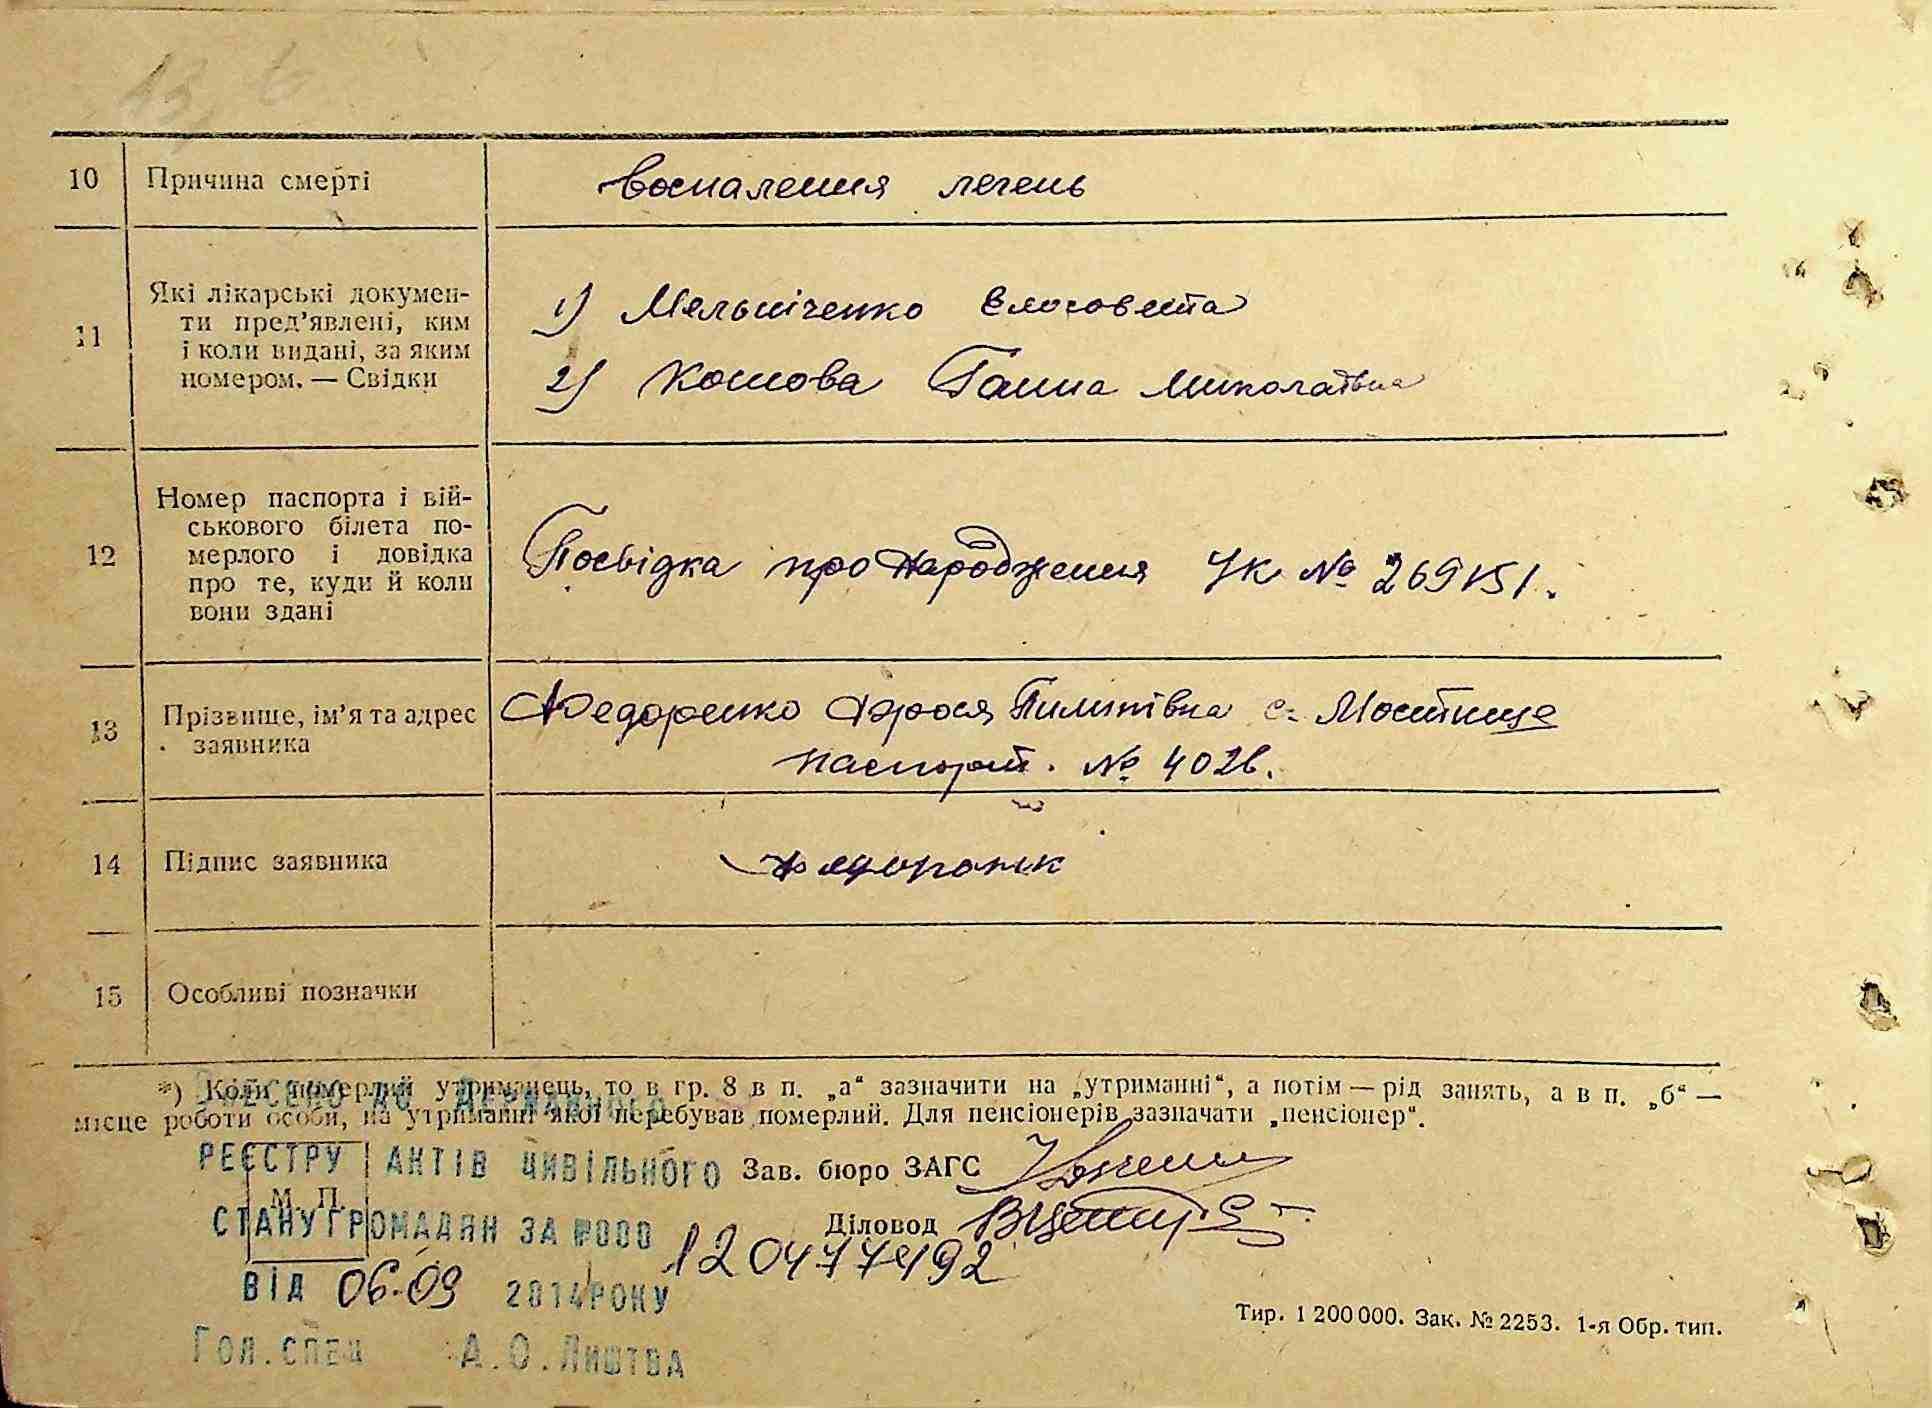 10 Причина смерті воспаления легень
11 Які лікарські докумен-
ти пред'явлені, ким
і коли видані, за яким
номером. — Свідки
1) Мельніченко Єлюзовета
2) Кошова Ганна Миколаївна
12 Номер паспорта і вій-
ськового білета по-
мерлого і довідка
про те, куди й коли
вони здані
Посвідка про народження УК № 269151.
13 Прізвище, ім'я та адрес
заявника
Федоренко Фрося Пилипівна с. Мостище
паспорт. № 4026.
14 Підпис заявника
15 Особливі позначки
*) Коли померлий утриманець, то в гр. 8 в п. „а“ зазначити на „утриманні“, а потім — рід занять, а в п. „б“ —
місце роботи особи, на утриманні якої перебував померлий. Для пенсіонерів зазначати „пенсіонер“.
ВНЕСЕНО ДО ДЕРЖАВНОГО
РЕЄСТРУ АКТІВ ЦИВІЛЬНОГО
Зав. бюро ЗАГС
М. П.
СТАНУ ГРОМАДЯН ЗА №000
Діловод
1204777492
ВІД 06.09 2014 РОКУ
Гол. спец А.О. Лиштва
Тир. 1 200 000. Зак. № 2253. 1-я Обр. тип.